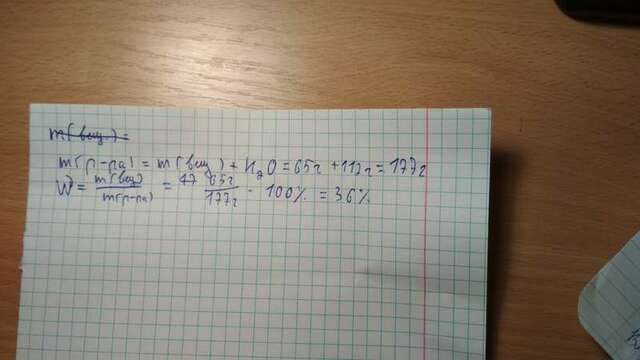 m(вещ.) =
m(р-ра) = m(вещ) + H₂O = 65г + 112г = 177г
W = m(вещ)/m(р-ра) = 65г/177г · 100% = 36%